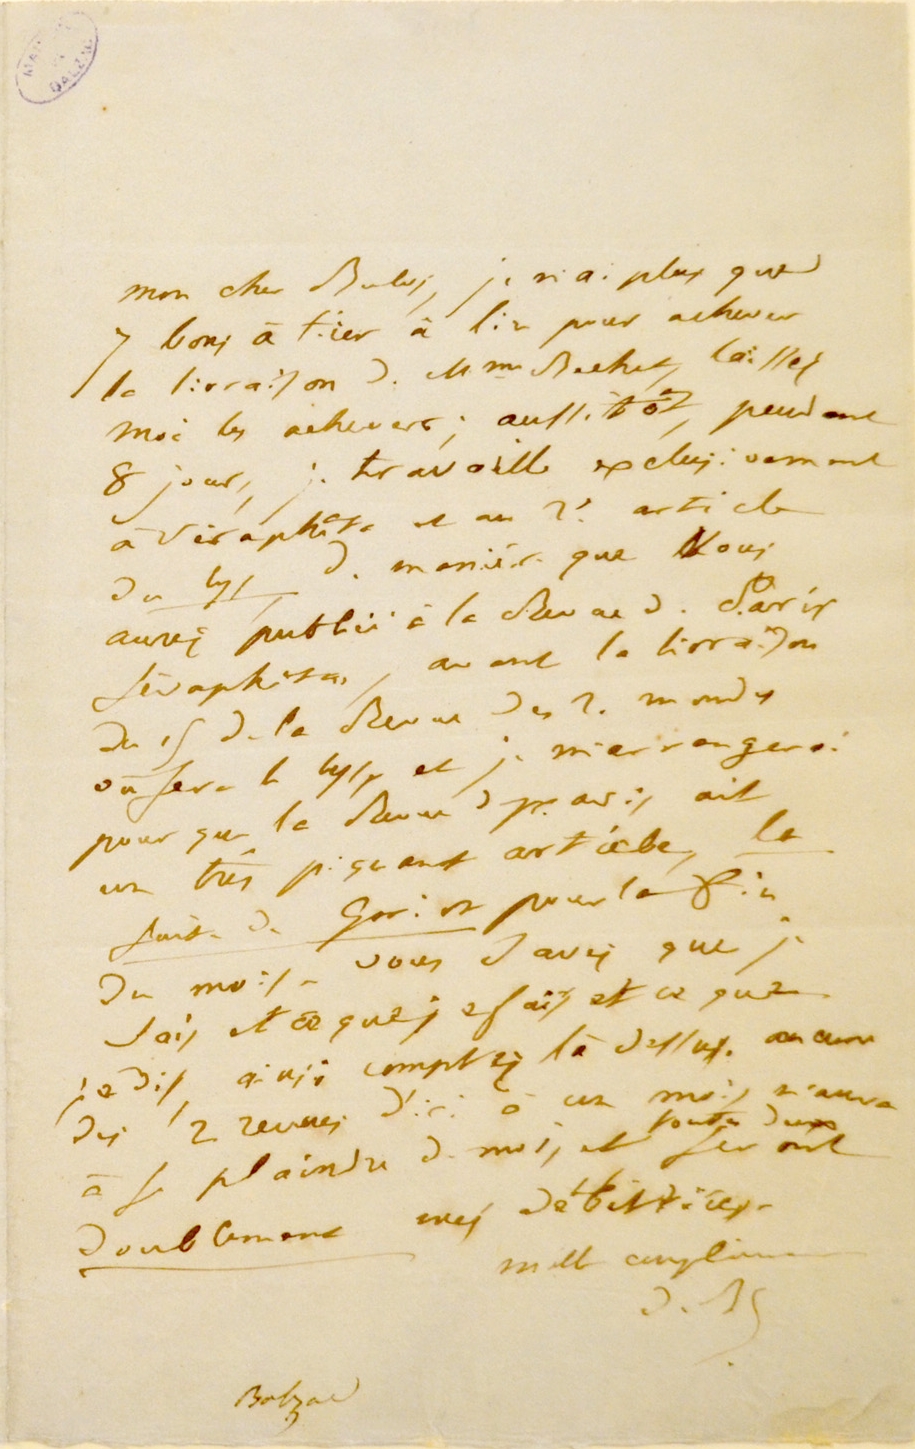 MAISON DE BALZAC
mon cher Buloz, je n'ai plus que
7 bons à tirer à lire pour achever
la livraison de Mme Bechet, laissez
moi les achever; aussitôt, pendant
8 jours, je travaille exclusivement
à Séraphîta et au 2e article
du lys, de manière que Vous
aurez publié à la Revue de Paris
Séraphita, avant la livraison
du 15 de la Revue des 2. mondes
où sera le lys, et je m'arrangerai
pour que la Revue de paris ait
un très piquant article, la
suite de Goriot pour la fin
du mois. vous savez que je
sais et ce que je fais et ce que
je dis, ainsi comptez là dessus. aucune
des 2 revues d'ici à un mois n'aura
à se plaindre de moi, et toutes deux seront
doublement mes débitrices.
mille compliments
d. Bc
Balzac